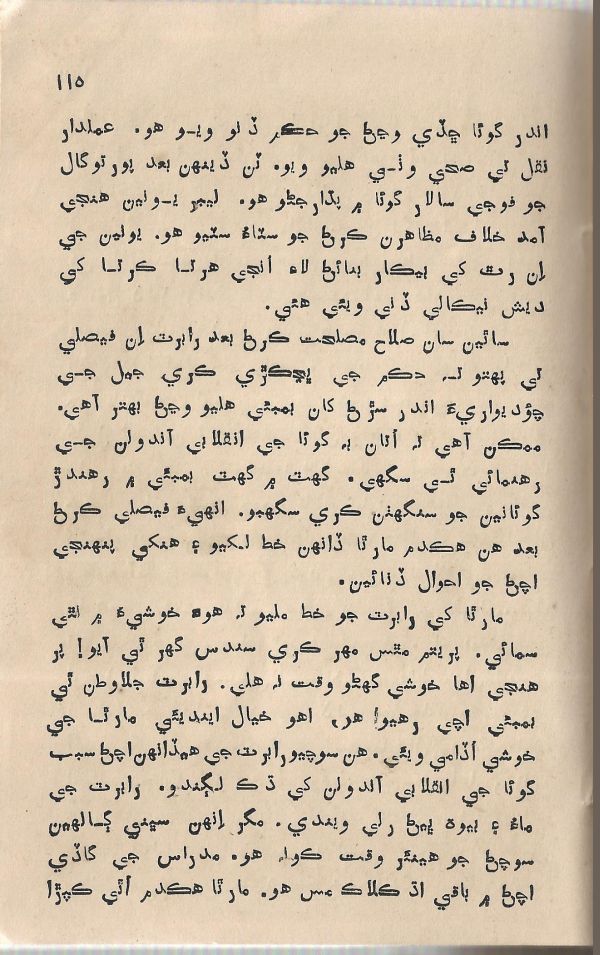 ١١٥
اندر گوئا ڇڏي وڃڻ جو حڪم ڏنو ويو هو. عملدار
نقل تي صحي وٺي هليو ويو. ٽن ڏينهن بعد پورتوگال
جو فوجي سالار گوئا ۾ پڌارڻو هو. ليبر يونين هنجي
آمد خلاف مظاهرن ڪرڻ جو سٽاءُ سٽيو هو. يونين جي
اِن رٿ کي بيڪار بنائڻ لاءِ اُنجي هرتا ڪرتا کي
ديش نيڪالي ڏني ويئي هئي.
ساٿين سان صلاح مصلحت ڪرڻ بعد رابرٽ اِن فيصلي
تي پهتو تہ حڪم جي ڀڃڪڙي ڪري جيل جي
چؤديواريءَ اندر سڙڻ کان بمبئي هليو وڃڻ بهتر آهي.
ممڪن آهي تہ اُتان بہ گوئا جي انقلابي آندولن جي
رهنمائي ٿي سگهي. گهٽ ۾ گهٽ بمبئي ۾ رهندڙ
گوئانين جو سنگهٽن ڪري سگهبو. انهيءَ فيصلي ڪرڻ
بعد هن هڪدم مارٿا ڏانهن خط لکيو ۽ هنکي پنهنجي
اچڻ جو احوال ڏنائين.
مارٿا کي رابرٽ جو خط مليو تہ هوءَ خوشيءَ ۾ نٿي
سمائي. پريتم مٿس مهر ڪري سندس گهر ٿي آيو! پر
هنجي اها خوشي گهڻو وقت نہ هلي. رابرٽ جلاوطن ٿي
بمبئي اچي رهيو هو، اهو خيال ايندي ئي مارٿا جي
خوشي اُڏامي ويئي. هن سوچيو رابرٽ جي هيڏانهن اچڻ سبب
گوئا جي انقلابي آندولن کي ڌڪ لڳندو. رابرٽ جي
ماءُ ۽ بيوه ڀيڻ رلي ويندي. مگر اِنهن سڀني ڳالهين
سوچڻ جو هينئر وقت ڪونہ هو. مدراس جي گاڏي
اچڻ ۾ باقي اڌ ڪلاڪ مس هو. مارٿا هڪدم اُٿي ڪپڙا